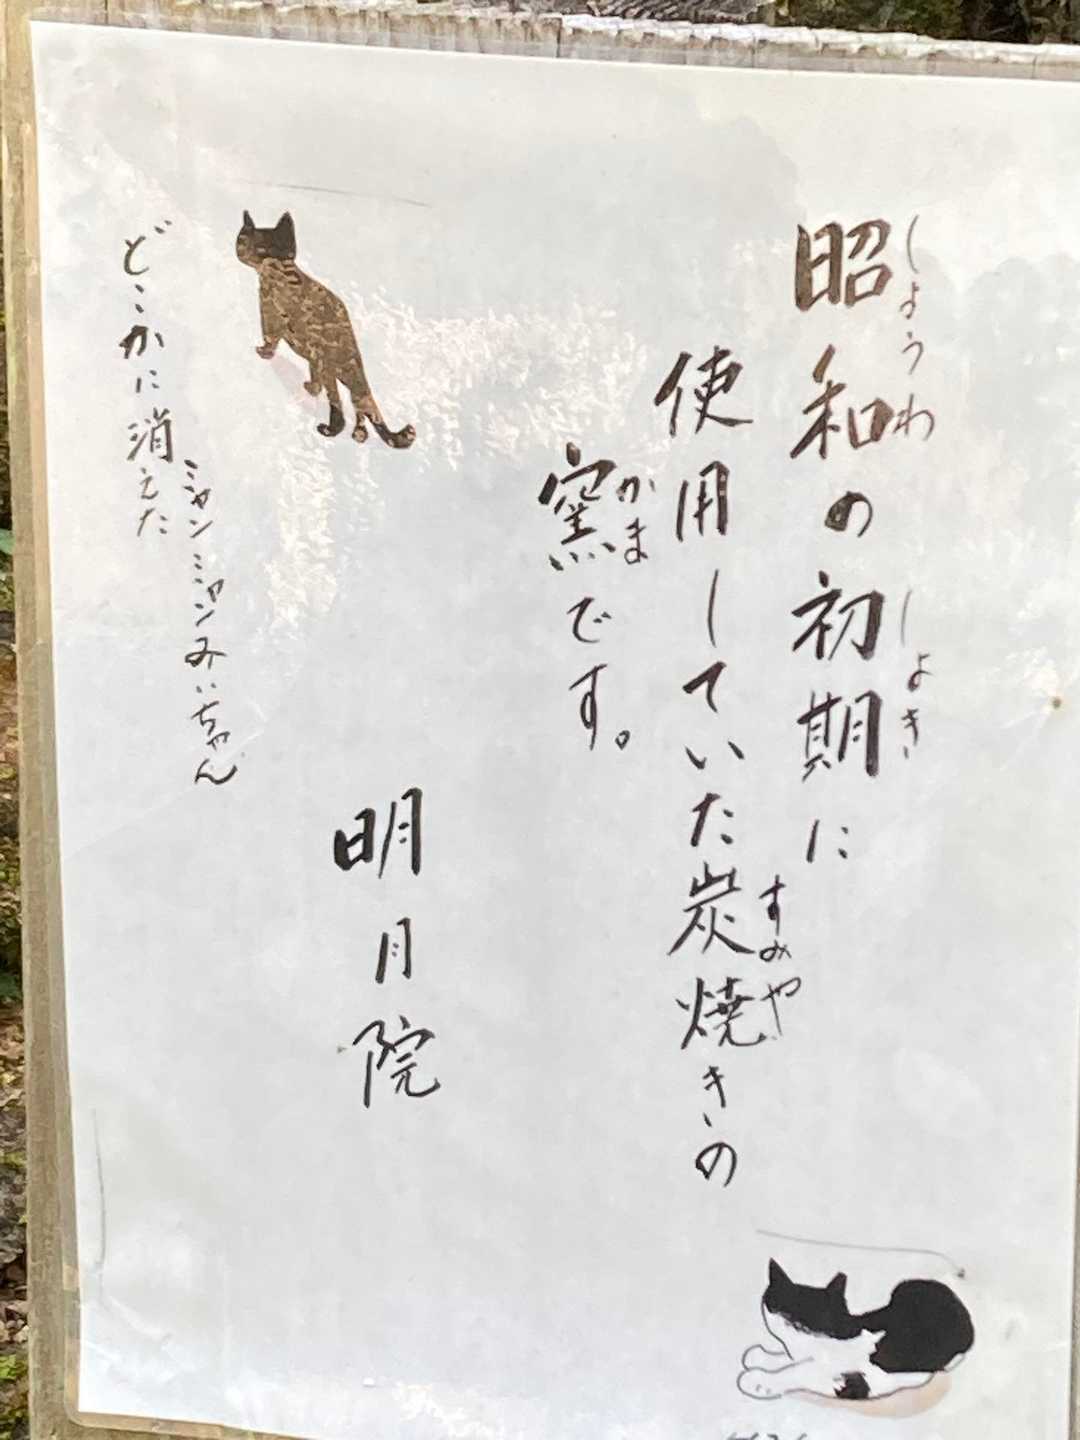 昭和の初期に
しょうわ
しょき
使用していた炭焼きの
すみや
窯です。
かま
明月院
ミャンミャンみぃちゃん
どこかに消えた